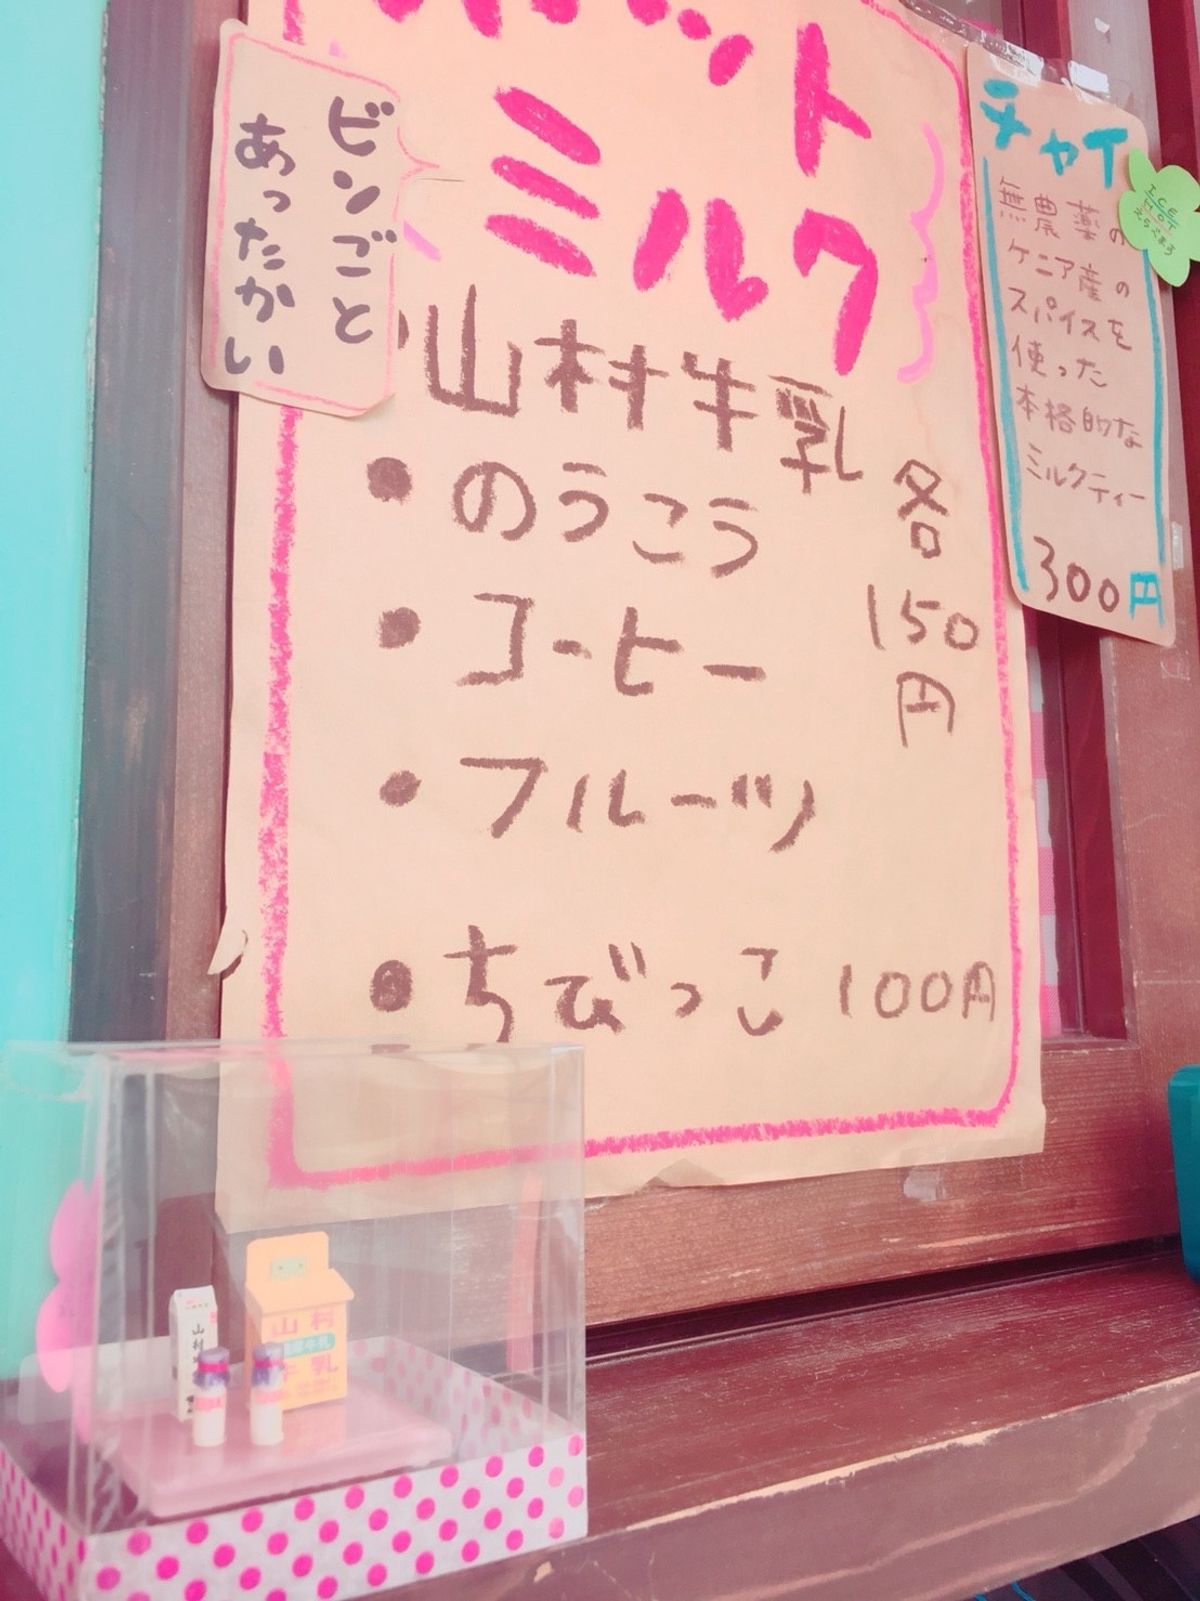 ホット
ミルク
ビンごと
あったかい
山村牛乳
・のうこう
・コーヒー
・フルーツ
各
150
円
・ちびっこ 100円
チャイ
ICE
HOT
えらべます
無農薬の
ケニア産の
スパイスを
使った
本格的な
ミルクティー
300円
山村
牛乳
山村